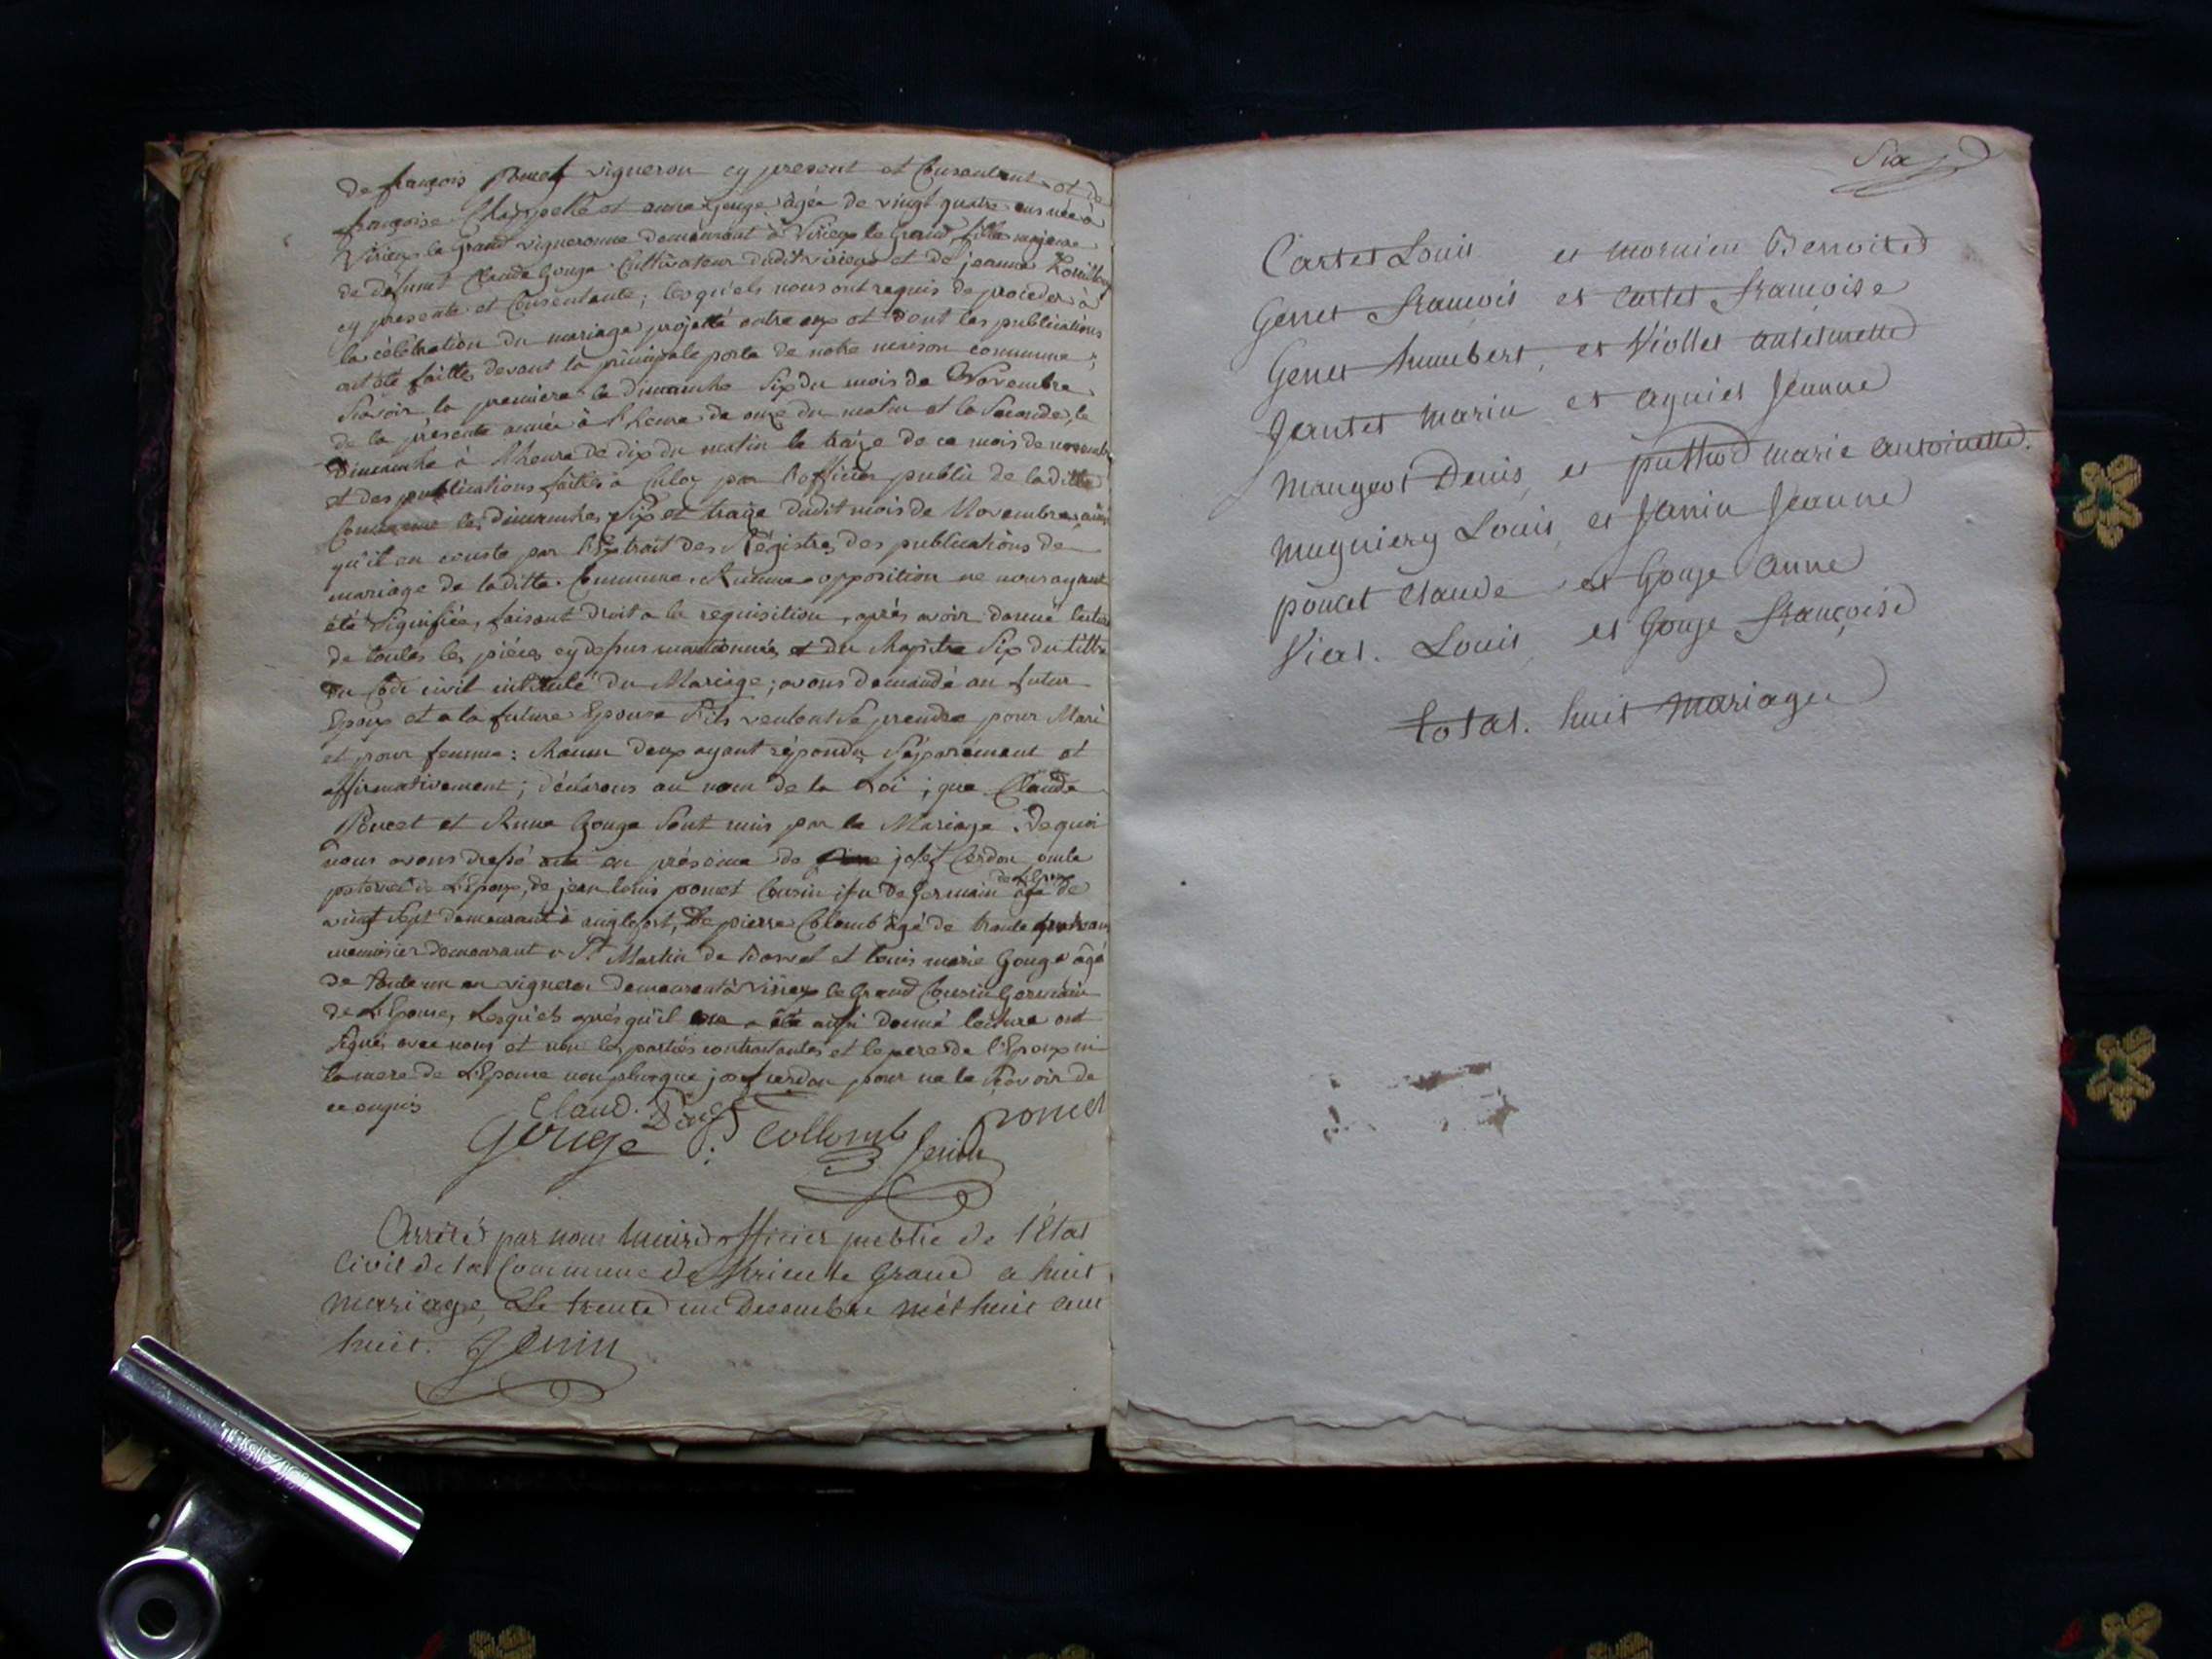 de françois Poncet vigneron cy present et Consentant et de
françoise Chappelle et anne Gouge agée de vingt quatre ans née à
Virieu le grand vigneronne demeurant à Virieu le Grand fille majeure
de défunt Claude Gouge Cultivateur dudit virieu et de jeanne
cy presente et Consentante ; lesquels nous ont requis de proceder à
la célébration du mariage projetté entre eux et dont les publications
ont été faittes devant la principale porte de notre maison commune ;
Savoir la premiere le dimanche Six du mois de Novembre
de la presente année à l'heure de onze du matin et la Seconde, le
Dimanche à l'heure de dix du matin le traize de ce mois de novembre
et des publications faittes à par l'officier public de laditte
Commune les dimanches Six et traize dudit mois de Novembre, ainsi
qu'il en conste par l'Extrait des Régistres des publications de
mariage de laditte Commune. Aucune opposition ne nous ayant
été Signifiée, faisant droit a la requisition, après avoir donné lecture
de toutes les pièces cy dessus mentionnés et du Chapitre Six du tittre
du Code civil intitulé du Mariage ; avons demandé au futur
Epoux et a la future Epouse S'ils veulent Se prendre pour Mari
et pour femme : chacun deux ayant répondu Séparément et
affirmativement ; déclarons au nom de la Loi ; que Claude
Poncet et Anne Gouge Sont unis par le Mariage. De quoi
nous avons dressé acte en présence de josef Cerdon oncle
paternel de L'Epoux, de jean louis poncet Cousin issu De Germain de L'Epoux agé de
vingt Sept demeurant à anglefort, De pierre Colomb agé de trante quatre ans
menuisier demeurant à St Martin de Bavel et louis marie Gouge agé
de trante un an vigneron demeurant à Virieu le Grand Cousin Germain
de L'Epouse, Lesquels après qu'il en a été aussi donné lecture ont
Signés avec nous et non les parties contractantes et le pere de l'Epoux ni
la mere de L'Epouse non plus que josef cerdon pour ne le Savoir de
ce enquis
Claud.
Gouge Collomb Poncet
Jenin
Arrêté par nous maire officier public de l'état
Civil de la Commune de Virieu le Grand a huit
mariage, Le trente un Decembre mil huit cent
huit. Jenin
Six
Cartet Louis et mornieu Benoite
Genet François et Cartet Françoise
Genet humbert, et Viollet antelmette
Jantet Marin et agniet Jeanne
Mangeot Denis, et puthod marie antoinette.
Mugniery Louis, et Janin Jeanne
poncet Claude et Gouge Anne
Viat. Louis, et Gouge Françoise
total. huit Mariages